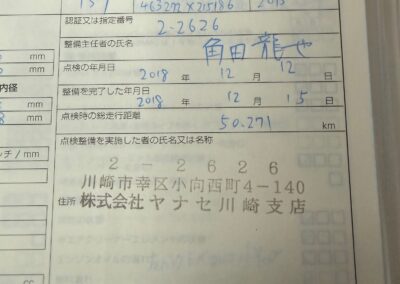 認証又は指定番号
2-2626
整備主任者の氏名
角田 龍也
点検の年月日
2018 年 12 月 12 日
整備を完了した年月日
2018 年 12 月 15 日
点検時の総走行距離
50.271 km
点検整備を実施した者の氏名又は名称
2-2626
川崎市幸区小向西町4-140
住所 株式会社ヤナセ川崎支店
mm
mm
内径
mm
mm
ンチ/mm
mm
cc